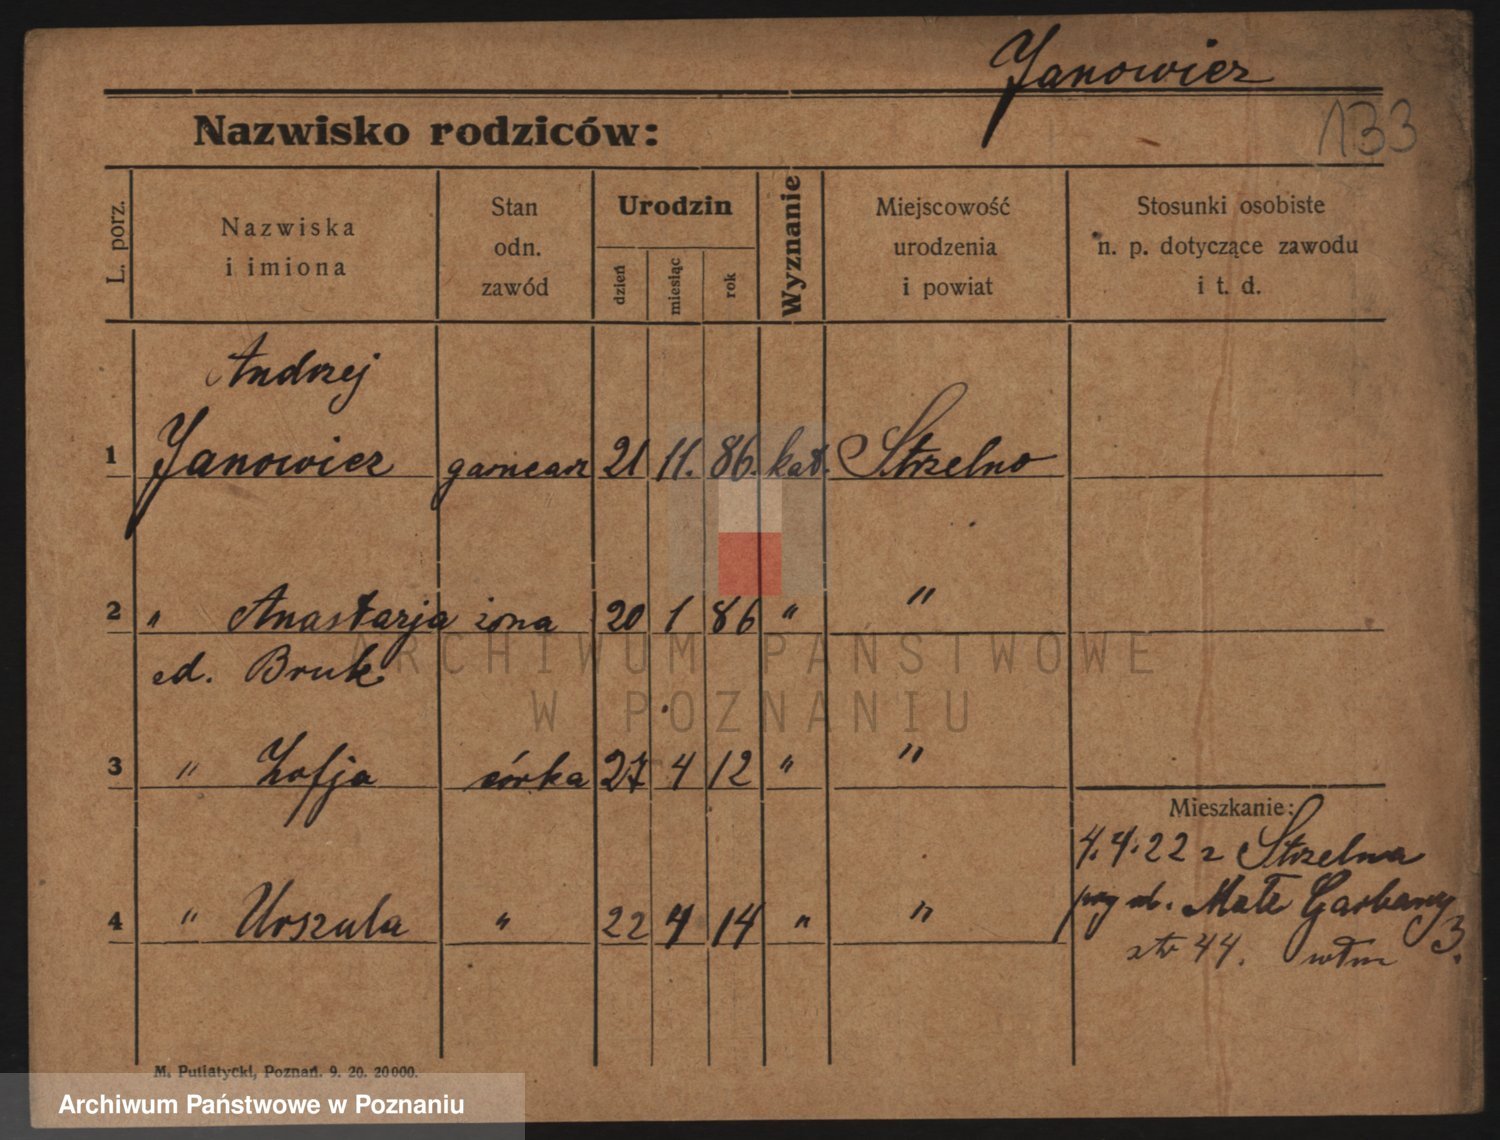 Janowicz
133
Nazwisko rodziców:
L. porz.
Nazwiska
i imiona
Stan
odn.
zawód
Urodzin
dzień
miesiąc
rok
Wyznanie
Miejscowość
urodzenia
i powiat
Stosunki osobiste
n. p. dotyczące zawodu
i t. d.
Andrzej
1 Janowicz garncarz 21 11. 86. kat. Strzelno
2 " Anastazja żona 20 1 86 " "
zd. Bruk
3 " Zofja córka 27 4 12 " "
Mieszkanie:
4.4.22 z Strzelna
przy ul. Małe Garbary 3.
4 " Urszula " 22 4 14 " "
44.
M. Putiatycki, Poznań. 9. 20. 20000.
ARCHIWUM PAŃSTWOWE
W POZNANIU
Archiwum Państwowe w Poznaniu